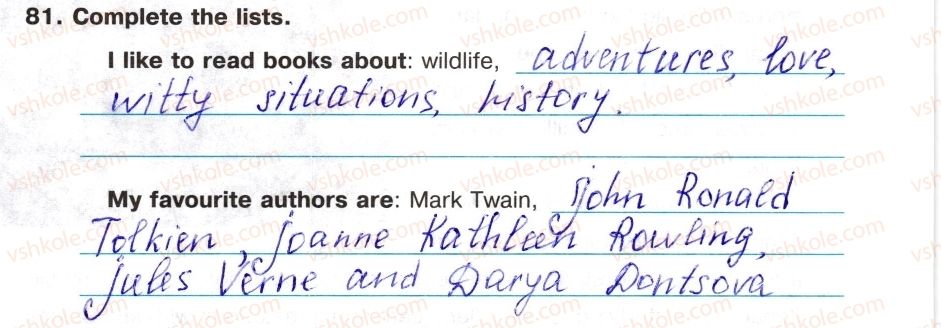 81. Complete the lists.
I like to read books about: wildlife, adventures, love,
witty situations, history.
My favourite authors are: Mark Twain, John Ronald
Tolkien, Joanne Kathleen Rowling,
Jules Verne and Darya Dontsova